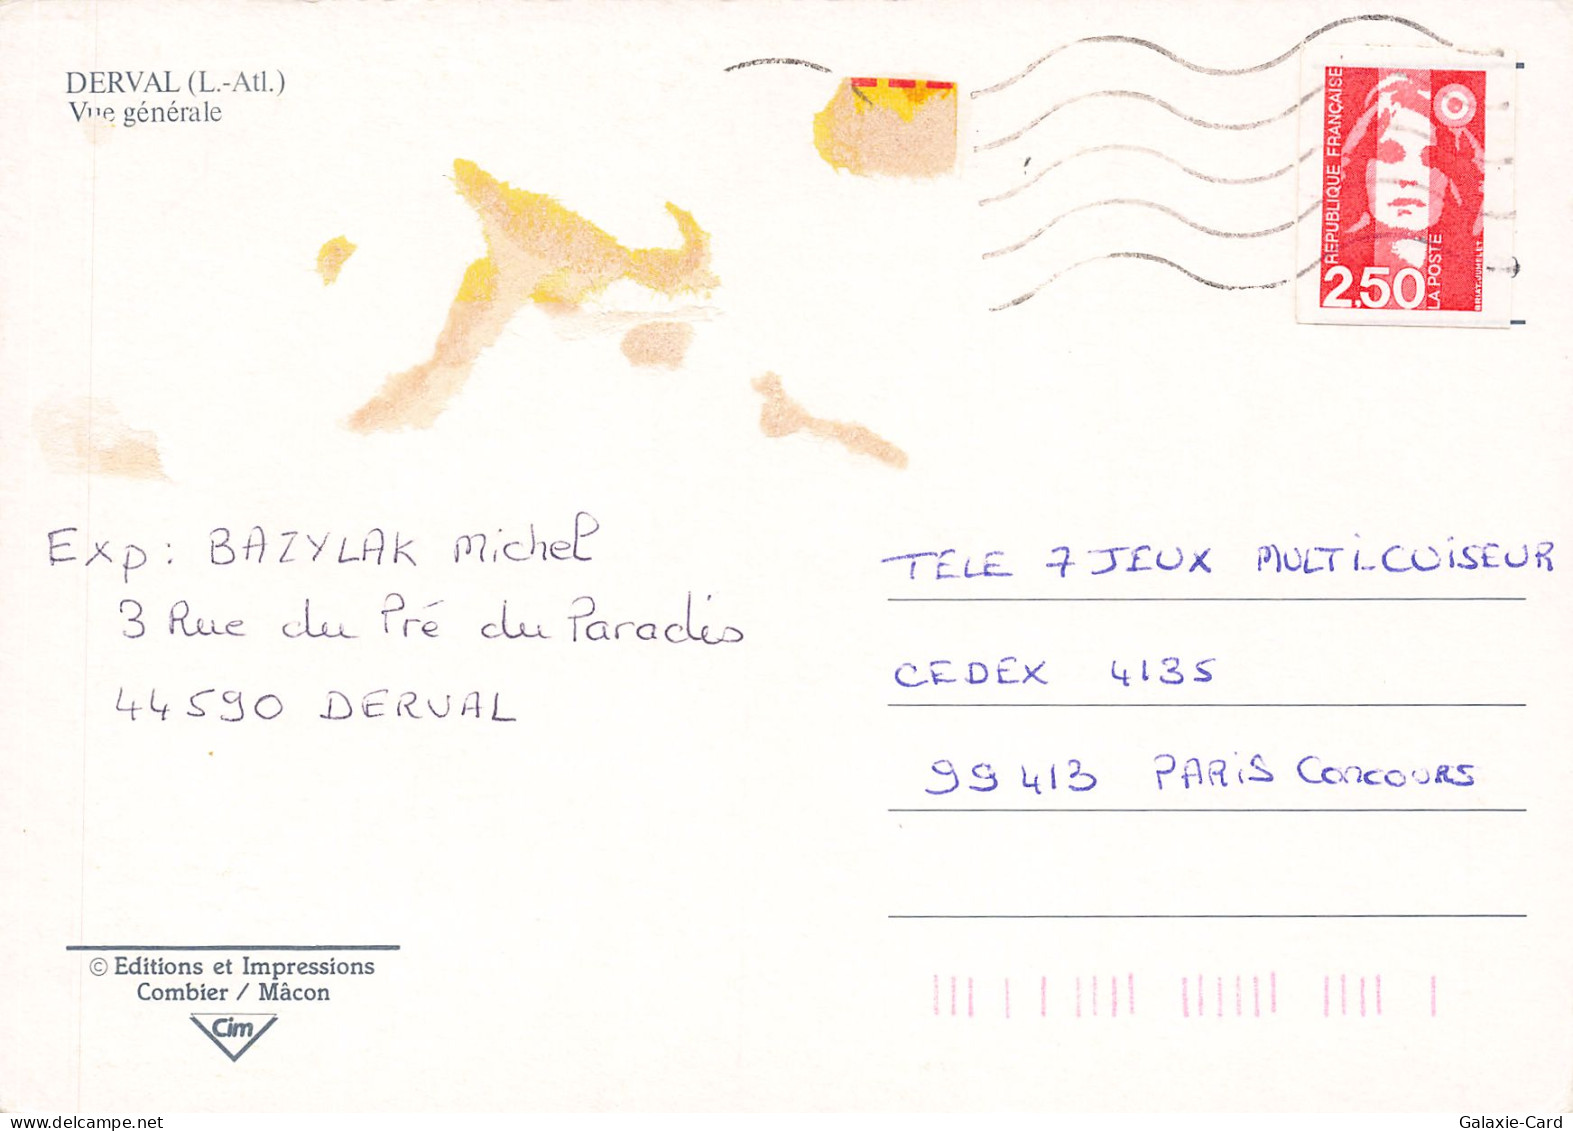 DERVAL (L.-Atl.)
Vue générale
REPUBLIQUE FRANÇAISE
2,50
LA POSTE
BRIAT-JUMELET
Exp: BAZYLAK Michel
3 Rue du Pré du Paradis
44590 DERVAL
TELE 7 JEUX MULTI-CUISEUR
CEDEX 4135
99413 PARIS CONCOURS
© Editions et Impressions
Combier / Mâcon
Cim
Galaxie-Card